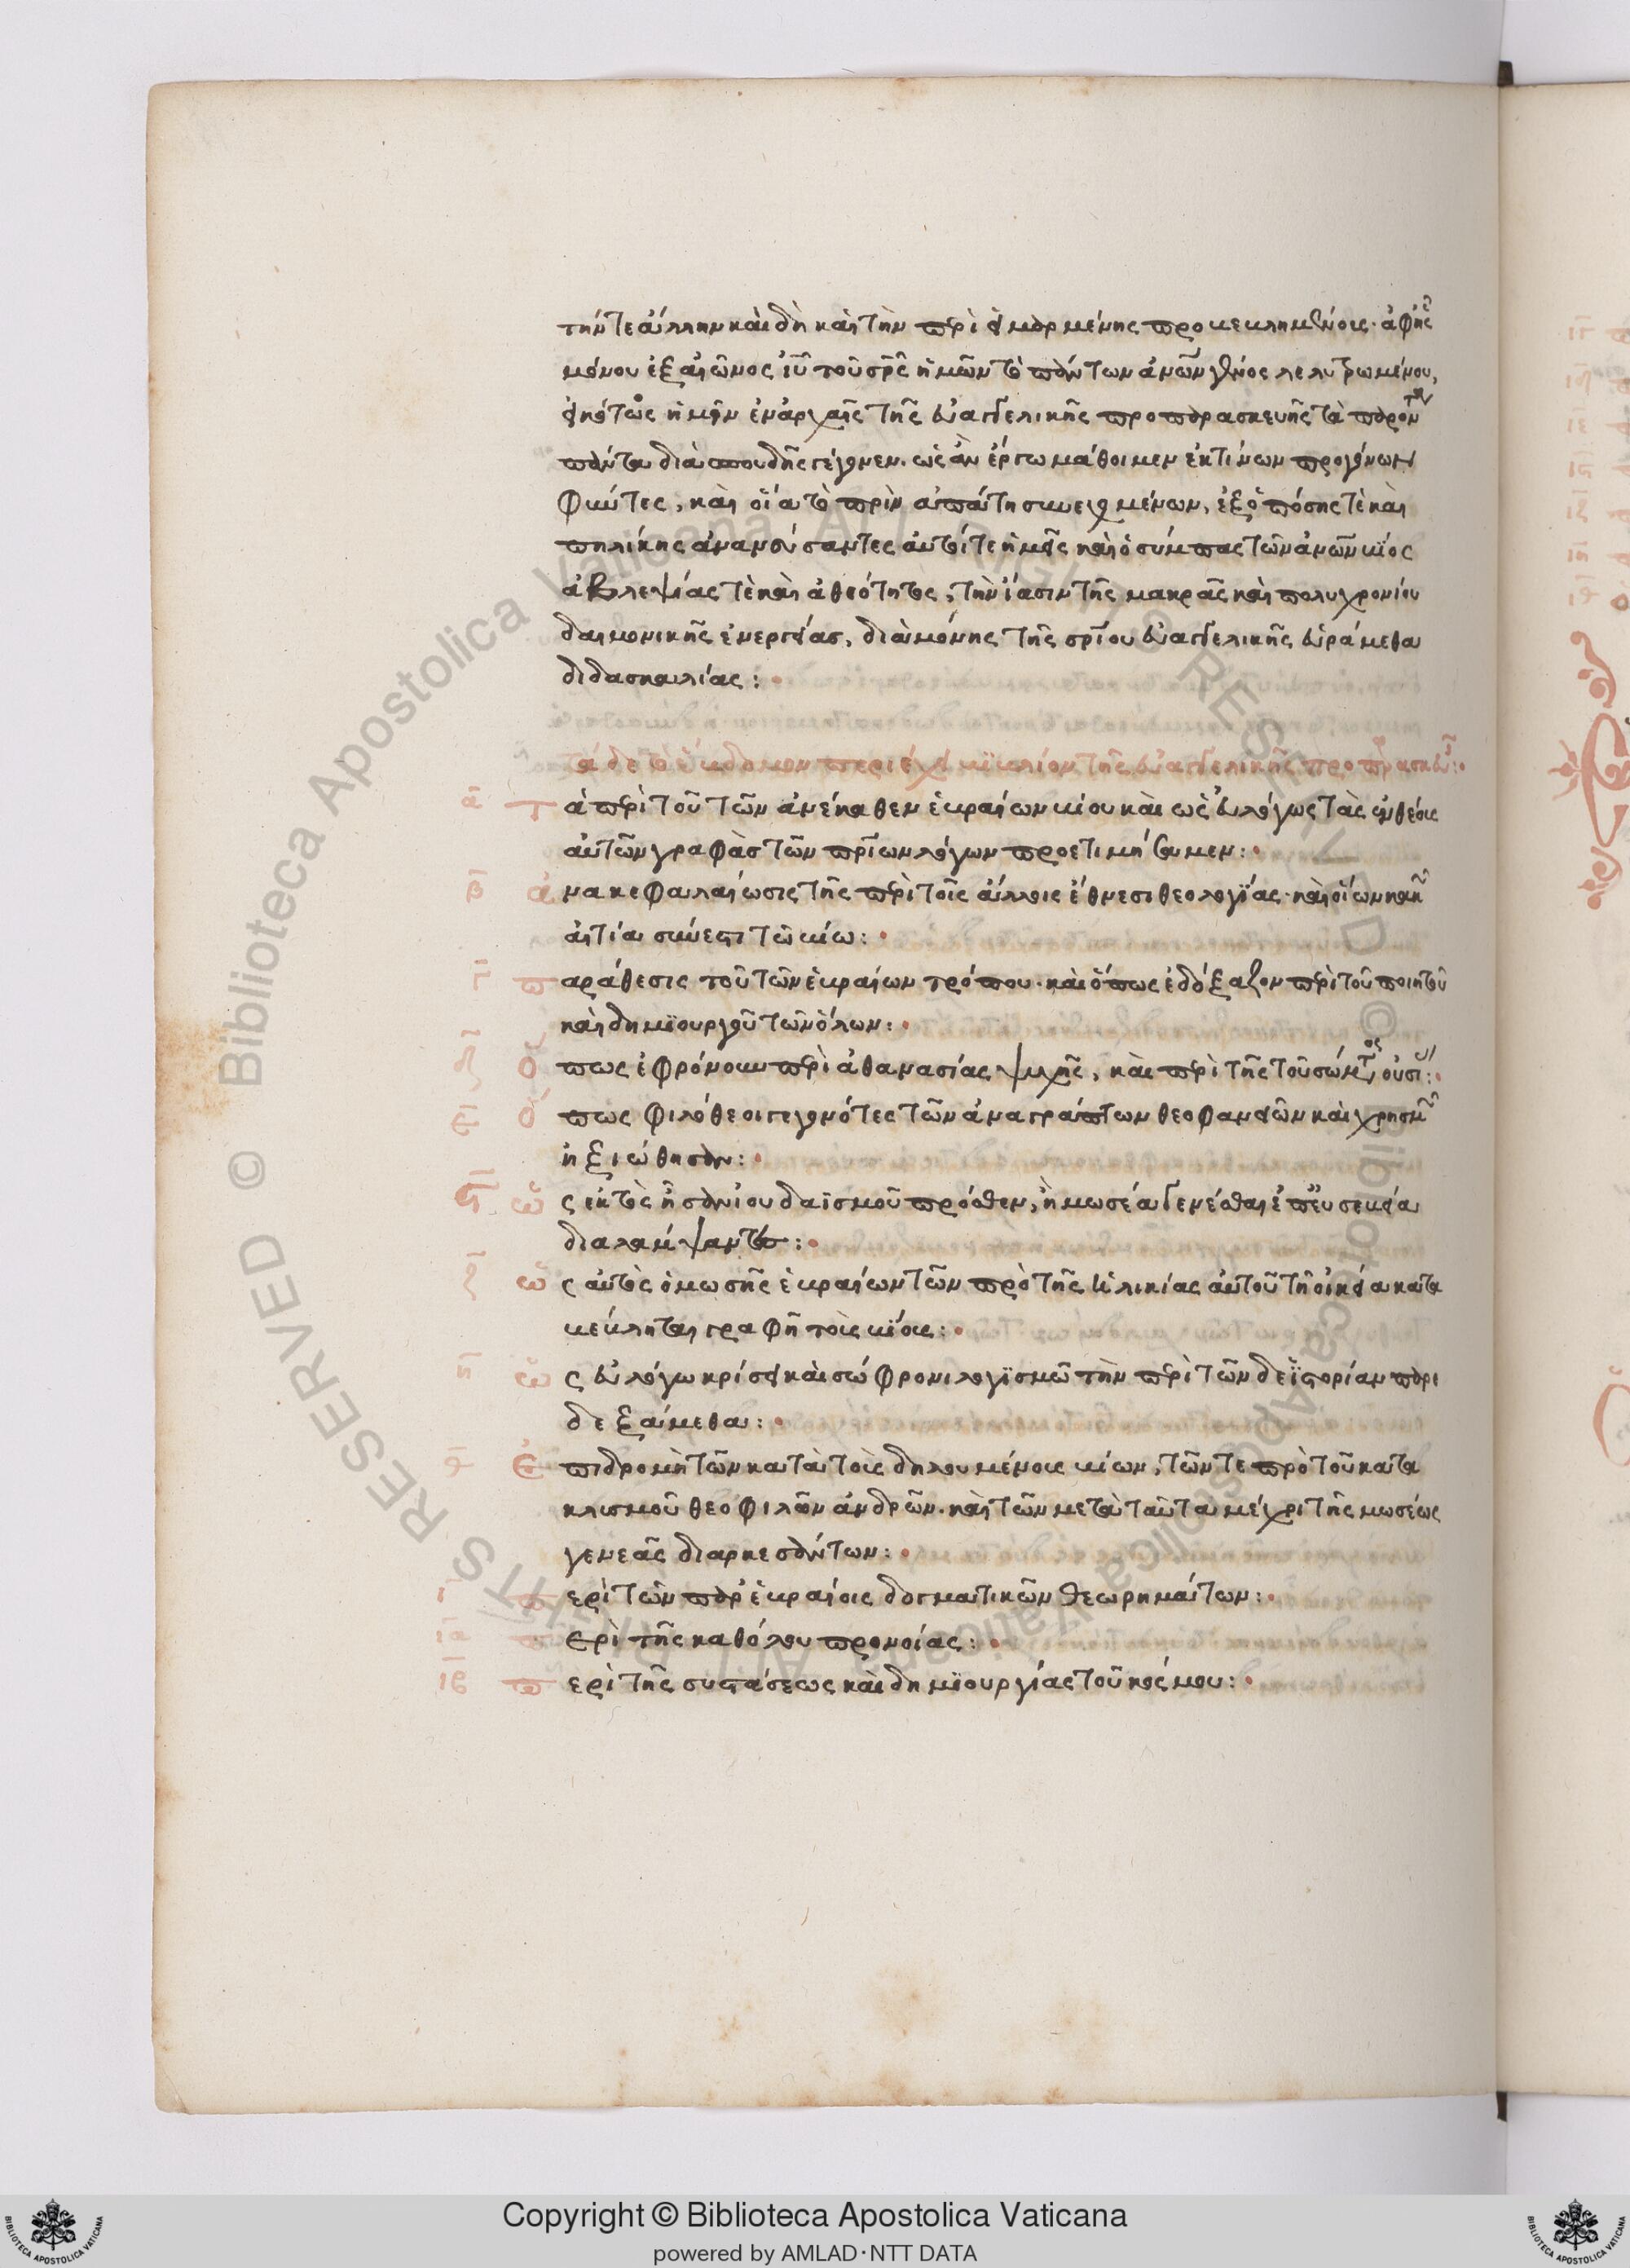 τήν τε ἄλλην καὶ δὴ καὶ τὴν περὶ εἱμαρμένης προκεκλημένοις· ἀφ' ἧς
μόνου ἐξ αἰῶνος ἰῦ τοῦ σρς ἡμῶν τὸ πάντων ἀνων γένος λελυτρωμένου,
εἰκότως ἡμῖν ἐν ἀρχαῖς τῆς εὐαγγελικῆς προπαρασκευῆς τὰ παρόντα
πάντα διὰ σπουδῆς γέγονεν. ὡς ἂν ἔργω μάθοιμεν ἐκ τίνων προγόνων
φύντες, καὶ οἵα τὸ πρὶν ἀπάτη συνεχομένων, ἐξ ὁπόσης τὲ καὶ
πηλίκης ἀνανεύσαντες αὐτοί τε ἡμεῖς καὶ ὁ σύμπας τῶν ἀνων βίος
ἀβλεψίας τὲ καὶ ἀθεότητος, τὴν ἴασιν τῆς μακρᾶς καὶ πολυχρονίου
δαιμονικῆς ἐνεργείας, διὰ μόνης τῆς σρίου εὐαγγελικῆς εὑράμεθα
διδασκαλίας:
τάδε τὸ ἕβδομον περιέχει βιβλίον τῆς εὐαγγελικῆς προπαρασκευῆς:
α τὰ περὶ τοῦ τῶν ἀνέκαθεν ἑβραίων βίου καὶ ὡς εὐλόγως τὰς ἐνθέοις
αὐτῶν γραφὰς τῶν πρίων λόγων προετιμήσαμεν:
β ἀνακεφαλαίωσις τῆς περὶ τοῖς ἄλλοις ἔθνεσι θεολογίας· καὶ οἵων κακῶν
αἰτία συνέστη τῶ βίω:
γ παράθεσις τοῦ τῶν ἑβραίων τρόπου· καὶ ὅπως ἐδόξαζον περὶ τοῦ ποιητοῦ
καὶ δημιουργοῦ τῶν ὅλων:
δ ὅπως ἐφρόνουν περὶ ἀθανασίας ψυχῆς, καὶ περὶ τῆς τοῦ σώματος οὐσι:
ε ὅπως φιλόθεοι γεγονότες τῶν ἀναγράπτων θεοφανειῶν καὶ χρησμῶν
ἠξιώθησαν:
ς ὡς ἐκτὸς ἦσαν ἰουδαϊσμοῦ πρόσθεν, ἢ μωσέα γενέσθαι ἐπ' εὐσεβεία
διαλάμψαντες:
ζ ὡς αὐτὸς ὁ μωσῆς ἑβραίων τῶν πρὸ τῆς ἡλικίας αὐτοῦ τῆ οἰκεία κατα
βέβληται γραφῆ τοὺς βίους:
η ὡς εὐλόγω κρίσει καὶ σώφρονι λογισμῶ τὴν περὶ τῶνδε ἱστορίαν παρε
δεξάμεθα:
θ ἐπιδρομὴ τῶν κατὰ τοὺς δηλουμένους βίων, τῶν τε πρὸ τοῦ κατα
κλυσμοῦ θεοφιλῶν ἀνδρῶν· καὶ τῶν μετὰ ταῦτα μέχρι τῆς μωσέως
γενεᾶς διαρκεσάντων:
ι περὶ τῶν παρ' ἑβραίοις δογματικῶν θεωρημάτων:
ια περὶ τῆς καθόλου προνοίας:
ιβ περὶ τῆς συστάσεως καὶ δημιουργίας τοῦ κόσμου:
© Biblioteca Apostolica Vaticana ALL RIGHTS RESERVED
Copyright © Biblioteca Apostolica Vaticana
powered by AMLAD·NTT DATA
BIBLIOTECA APOSTOLICA VATICANA
BIBLIOTECA APOSTOLICA VATICANA